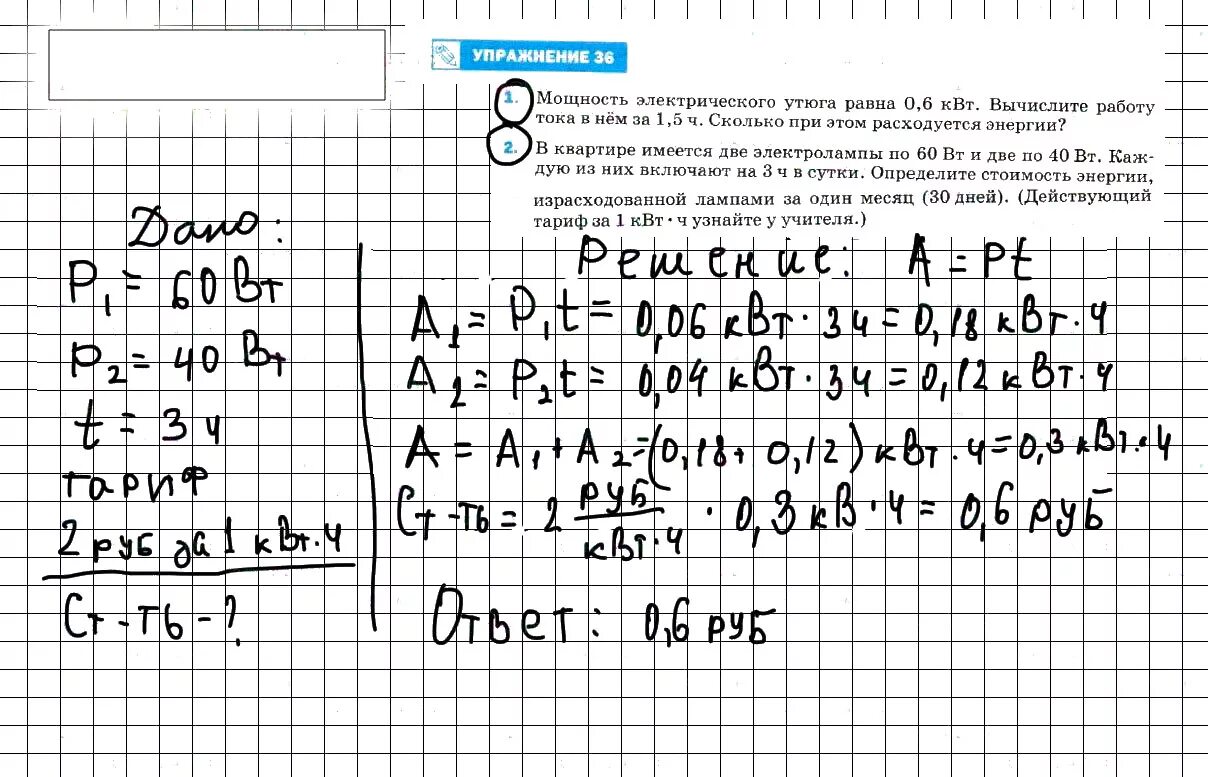 УПРАЖНЕНИЕ 36
1. Мощность электрического утюга равна 0,6 кВт. Вычислите работу
тока в нём за 1,5 ч. Сколько при этом расходуется энергии?
2. В квартире имеется две электролампы по 60 Вт и две по 40 Вт. Каж-
дую из них включают на 3 ч в сутки. Определите стоимость энергии,
израсходованной лампами за один месяц (30 дней). (Действующий
тариф за 1 кВт · ч узнайте у учителя.)
Дано:
P₁ = 60 Вт
P₂ = 40 Вт
t = 3 ч
тариф
2 руб за 1 кВт·ч
Ст-ть - ?
Решение: A = Pt
A₁ = P₁t = 0,06 кВт · 3ч = 0,18 кВт·ч
A₂ = P₂t = 0,04 кВт · 3ч = 0,12 кВт·ч
A = A₁ + A₂ = (0,18 + 0,12) кВт·ч = 0,3 кВт·ч
Ст-ть = 2 руб/кВт·ч · 0,3 кВ·ч = 0,6 руб
Ответ: 0,6 руб